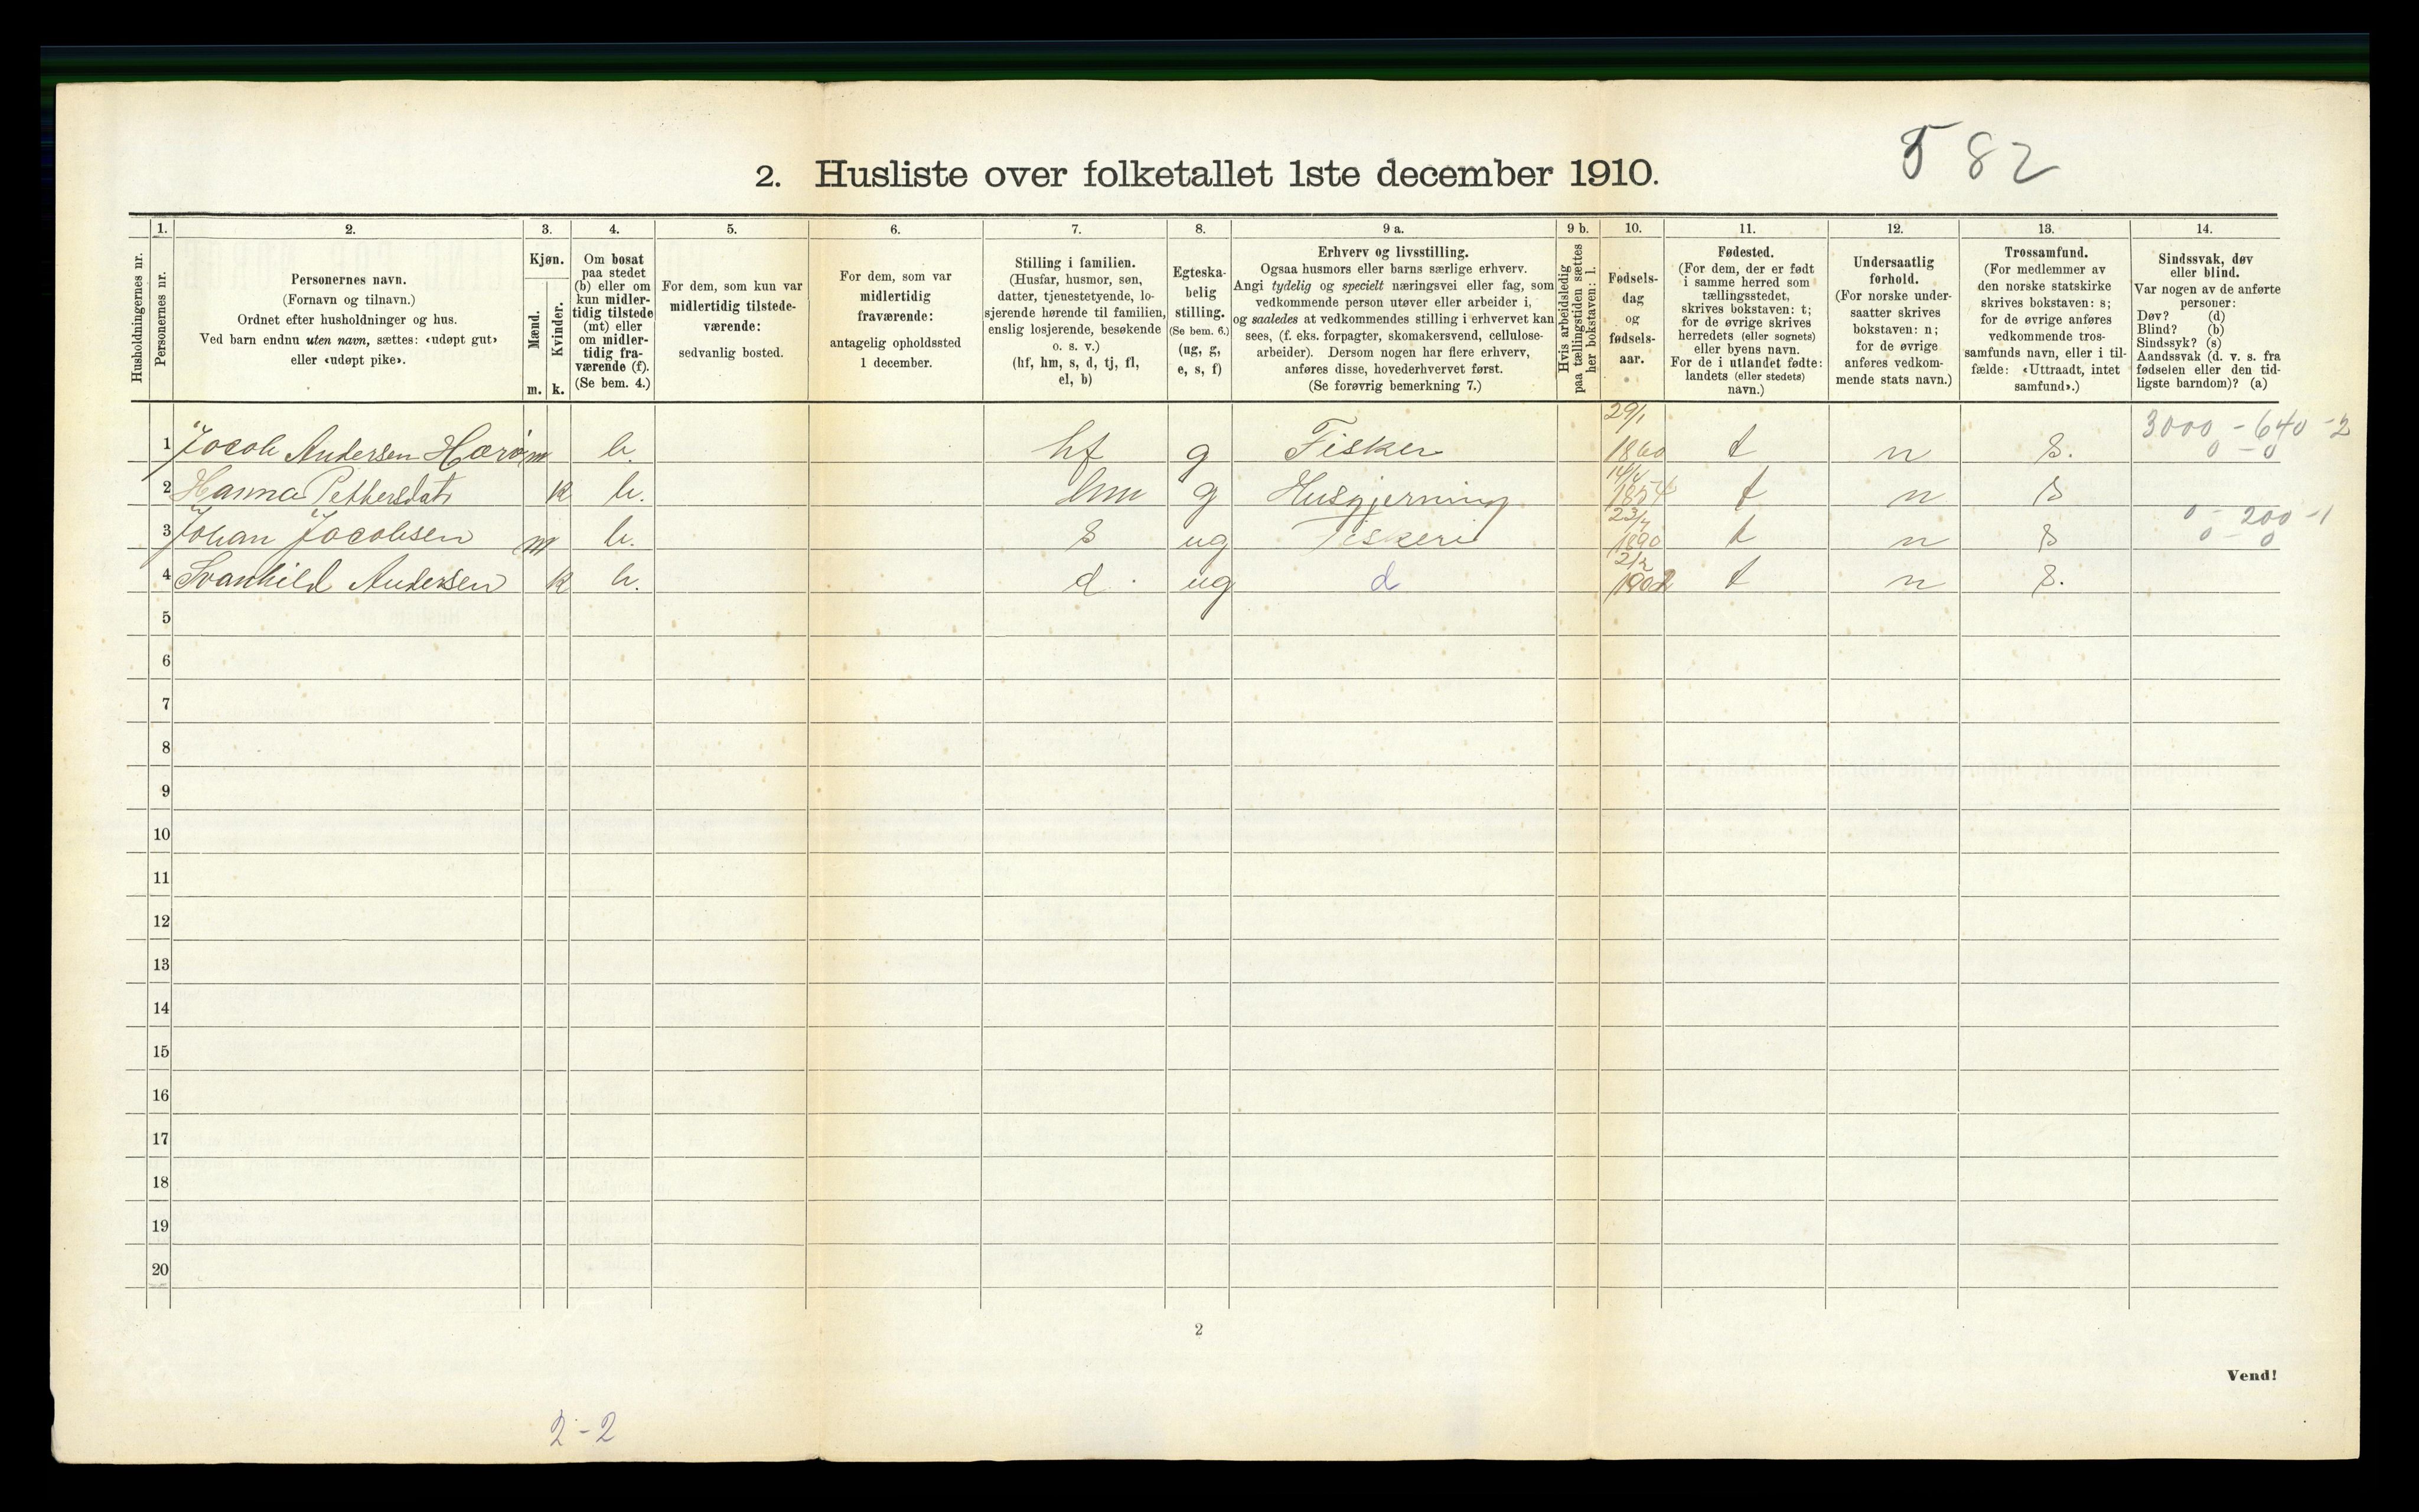 82
2. Husliste over folketallet 1ste december 1910.
Husholdningernes nr.
1.
Personernes nr.
2.
Personernes navn.
(Fornavn og tilnavn.)
Ordnet efter husholdninger og hus.
Ved barn endnu uten navn, sættes: «udøpt gut»
eller «udøpt pike».
3.
Kjøn.
Mænd.
m.
Kvinder.
k.
4.
Om bosat
paa stedet
(b) eller om
kun midler-
tidig tilstede
(mt) eller
om midler-
tidig fra-
værende (f).
(Se bem. 4.)
5.
For dem, som kun var
midlertidig tilstede-
værende:
sedvanlig bosted.
6.
For dem, som var
midlertidig
fraværende:
antagelig opholdssted
1 december.
7.
Stilling i familien.
(Husfar, husmor, søn,
datter, tjenestetyende, lo-
sjerende hørende til familien,
enslig losjerende, besøkende
o. s. v.)
(hf, hm, s, d, tj, fl,
el, b)
8.
Egteska-
belig
stilling.
(Se bem. 6.)
(ug, g,
e, s, f)
9 a.
Erhverv og livsstilling.
Ogsaa husmors eller barns særlige erhverv.
Angi tydelig og specielt næringsvei eller fag, som
vedkommende person utøver eller arbeider i,
og saaledes at vedkommendes stilling i erhvervet kan
sees, (f. eks. forpagter, skomakersvend, cellulose-
arbeider). Dersom nogen har flere erhverv,
anføres disse, hovederhvervet først.
(Se forøvrig bemerkning 7.)
9 b.
Hvis arbeidsledig
paa tællingstiden sættes
her bokstaven: l.
10.
Fødsels-
dag
og
fødsels-
aar.
11.
Fødested.
(For dem, der er født
i samme herred som
tællingsstedet,
skrives bokstaven: t;
for de øvrige skrives
herredets (eller sognets)
eller byens navn.
For de i utlandet fødte:
landets (eller stedets)
navn.)
12.
Undersaatlig
forhold.
(For norske under-
saatter skrives
bokstaven: n;
for de øvrige
anføres vedkom-
mende stats navn.)
13.
Trossamfund.
(For medlemmer av
den norske statskirke
skrives bokstaven: s;
for de øvrige anføres
vedkommende tros-
samfunds navn, eller i til-
fælde: «Uttraadt, intet
samfund».)
14.
Sindssvak, døv
eller blind.
Var nogen av de anførte
personer:
Døv? (d)
Blind? (b)
Sindssyk? (s)
Aandssvak (d. v. s. fra
fødselen eller den tid-
ligste barndom)? (a)
1 Jocob Andersen Harø m b. hf g Fisker 29/1 1860 t n s. 3000 - 640 - 2 0 - 0
2 Hanna Pettersdat k b. hm g Husgjerning 1854 t n s
3 Johan Jacobsen m b. s ug Fiskeri 23/7 1890 t n s 0 - 200 - 1 0 - 0
4 Svanhild Andersen k b. d. ug d t n s.
5
6
7
8
9
10
11
12
13
14
15
16
17
18
19
20
2
Vend!
2-2